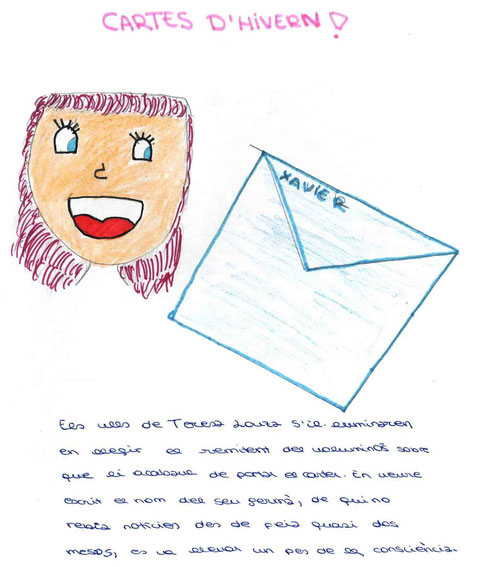 CARTES D'HiVERN!
XAVIER
Els ulls de Teresa Laura s'il·luminaren
en llegir el remitent del voluminós sobre
que li acabava de portar el carter. En veure
escrit el nom del seu germà, de qui no
rebia notícies des de feia quasi dos
mesos, es va llevar un pes de la consciència.